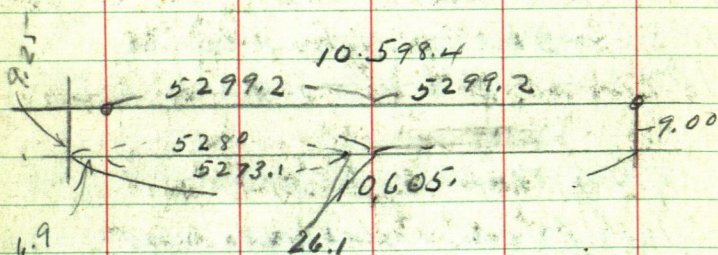 9.25
10.598.4
5299.2 5299.2
9.00
5280
5273.1
10,605.
6.9
26.1